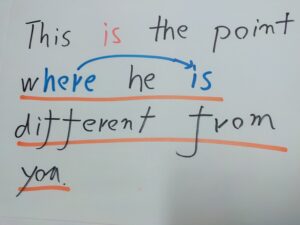 This is the point
where he is
different from
you.